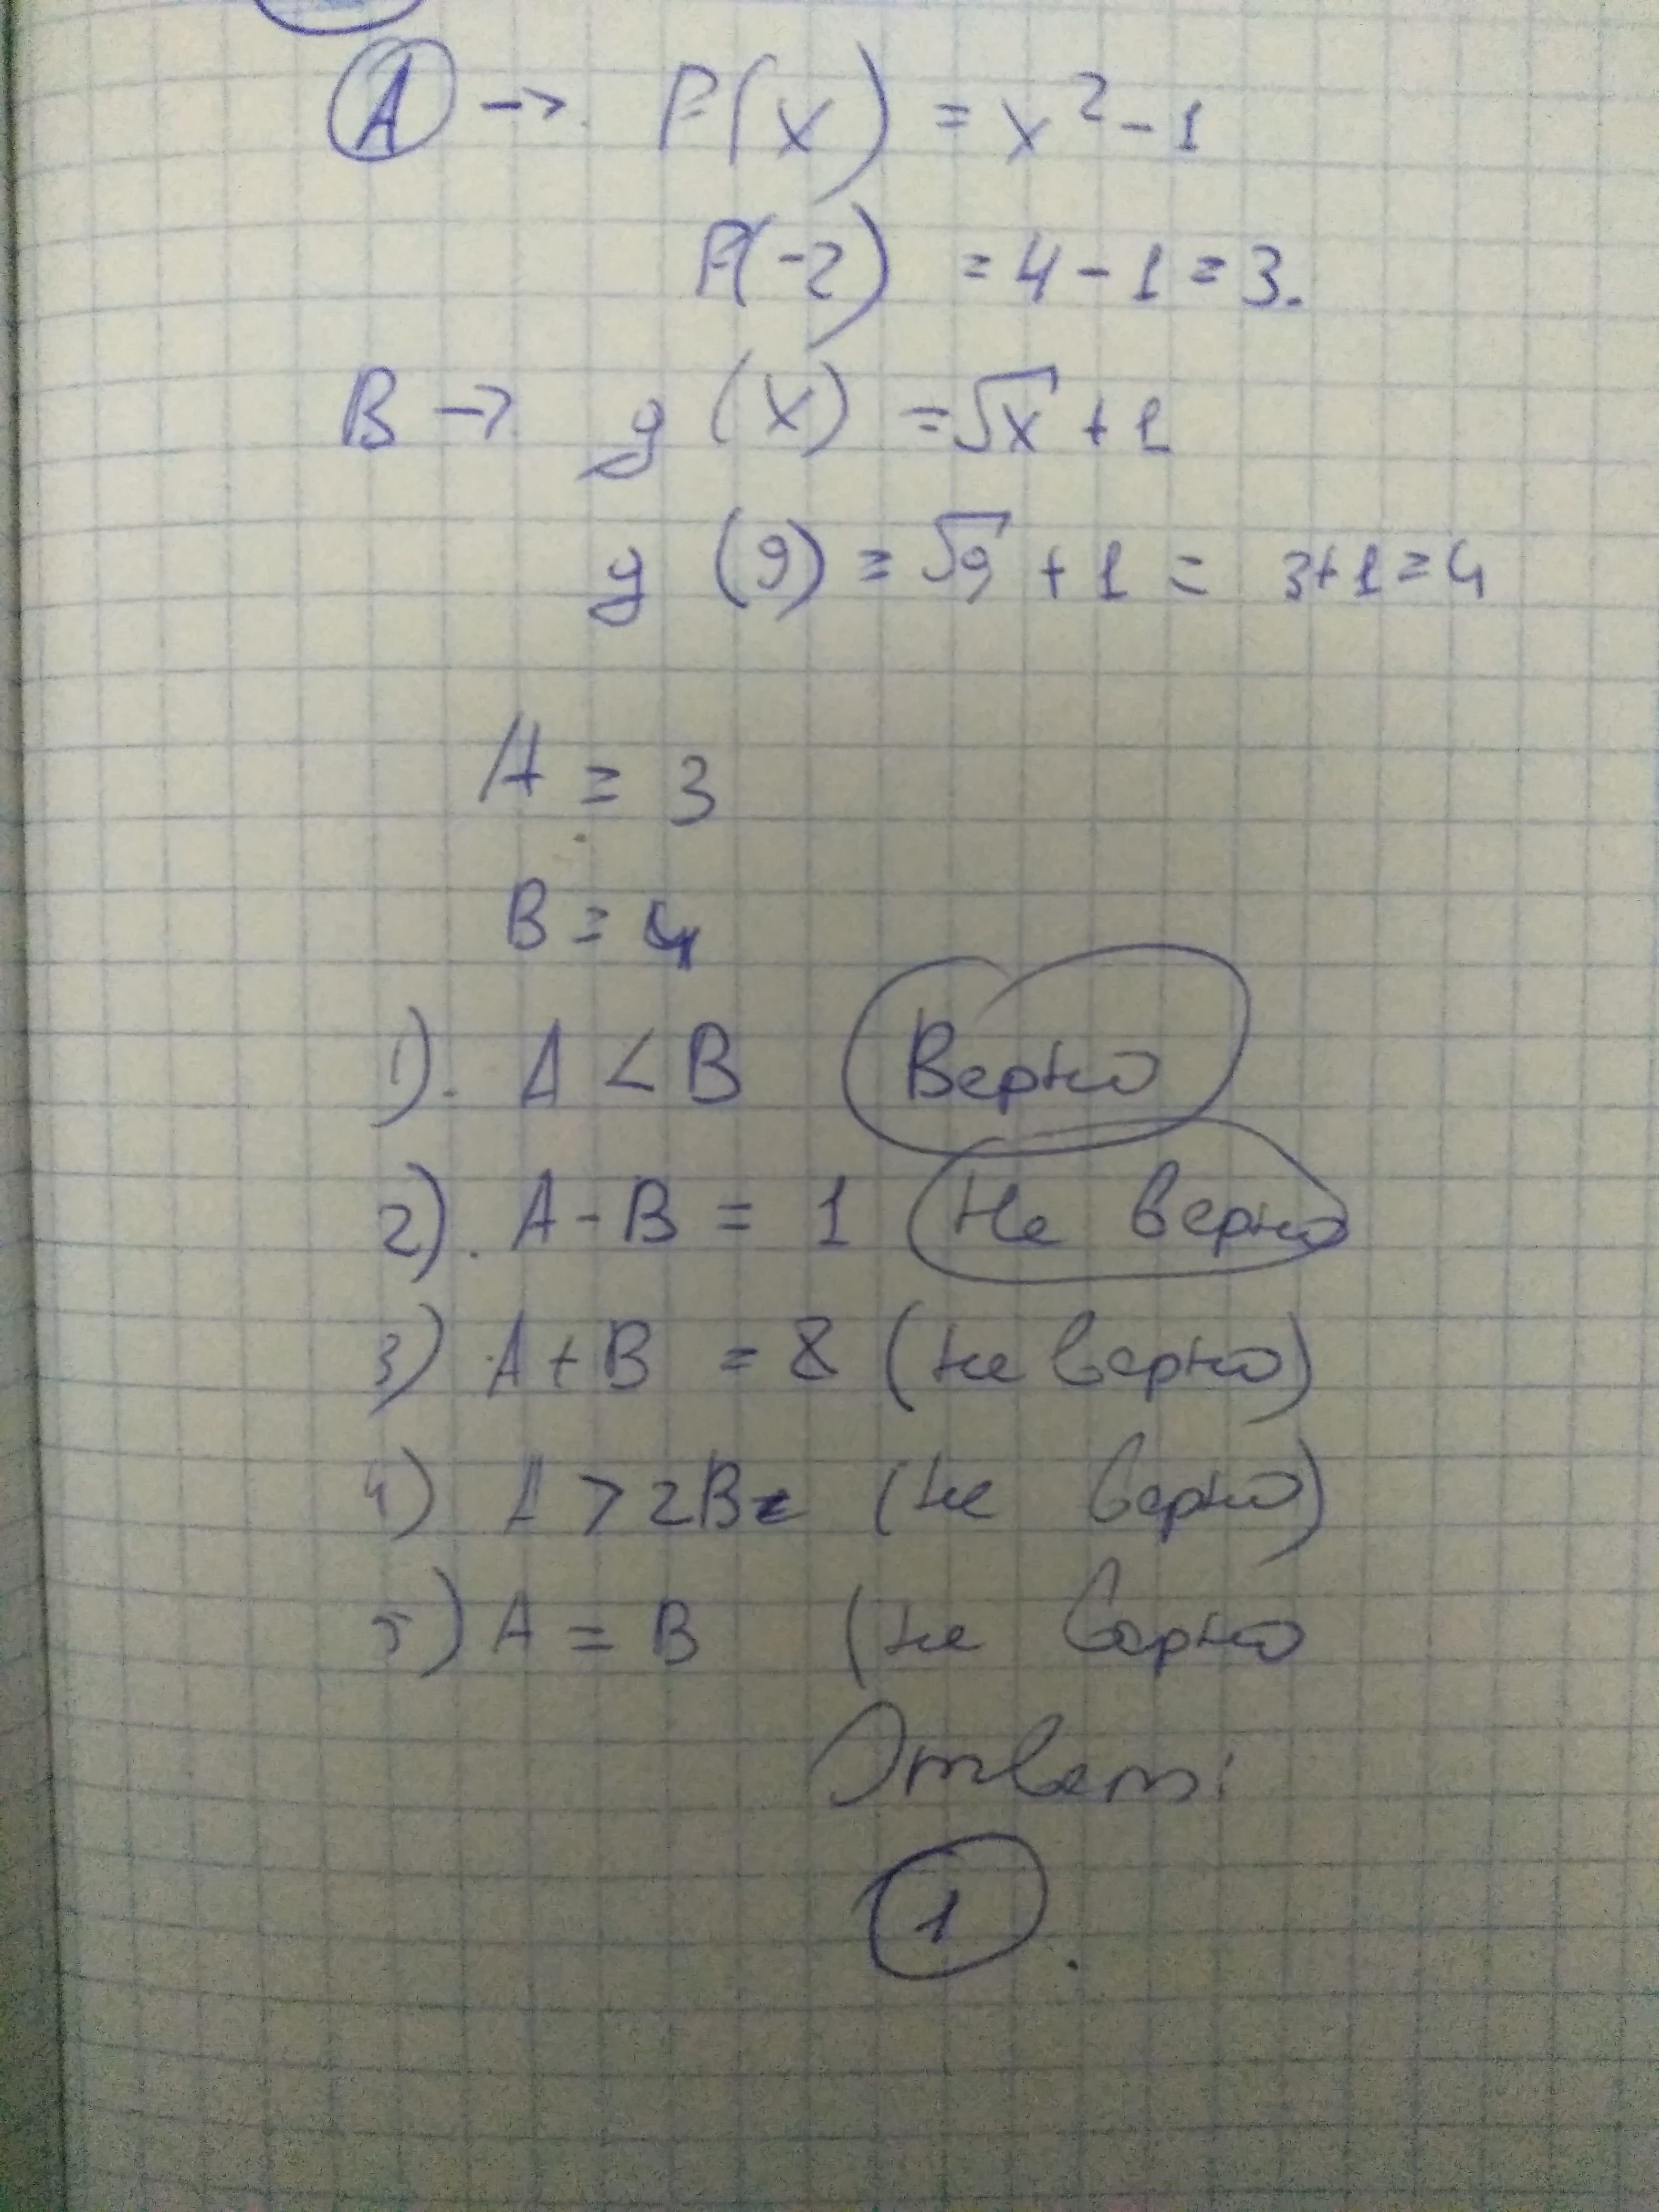 A → F(x) = x² - 1
F(-2) = 4 - 1 = 3.
B → g(x) = √x + 1
g(9) = √9 + 1 = 3+1=4
A = 3
B = 4
1). A < B Верно
2). A - B = 1 Не верно
3) A + B = 8 (не верно)
4) A > 2B (не верно)
5) A = B (не верно
Ответ:
1.